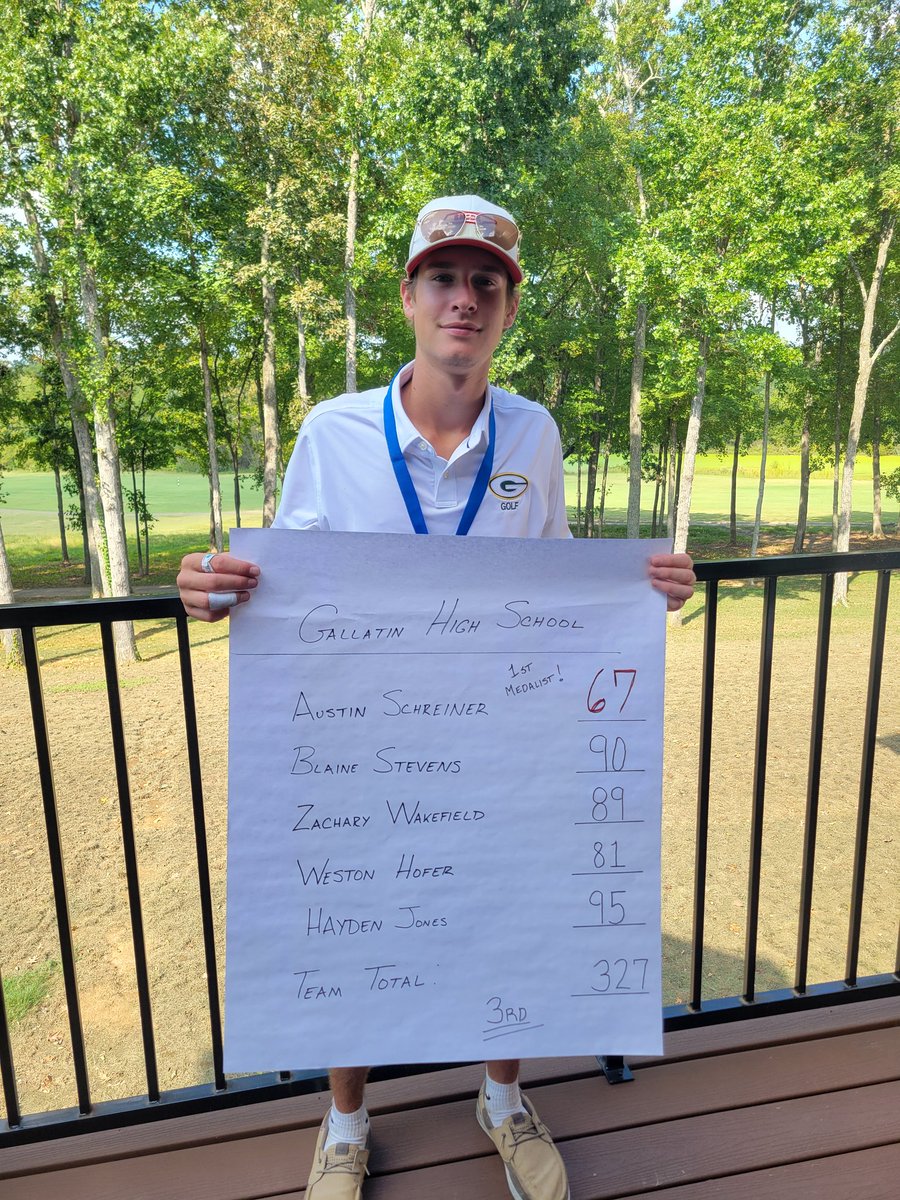 G
GOLF
GALLATIN HIGH SCHOOL
AUSTIN SCHREINER 1ST MEDALIST! 67
BLAINE STEVENS 90
ZACHARY WAKEFIELD 89
WESTON HOFER 81
HAYDEN JONES 95
TEAM TOTAL: 327
3RD